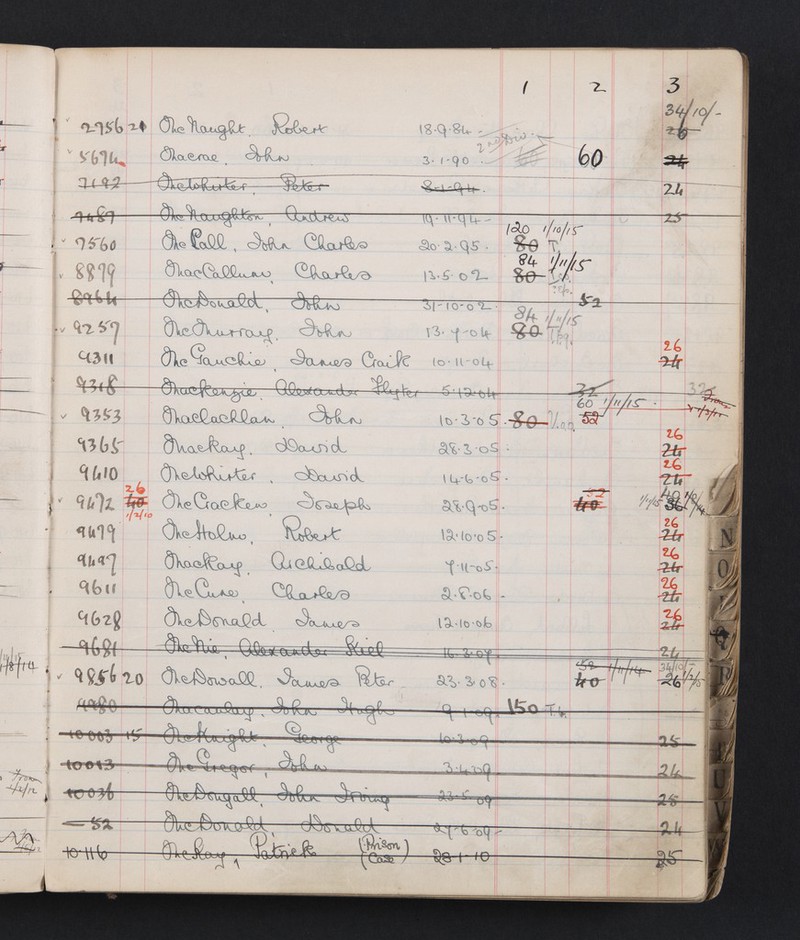 1 2 3
34/10/-
2956 21 McNaught, Robert 18.9.84 26
5674 Macrae, John 3.1.90 2nd Div. 60 24
7192 McWhirter, Peter 8.1.94. 24
9487 McNaughton, Andrew 19.11.94 25
120 1/10/15
7560 McCall, John Charles 20.2.95. 80 T
84 1/11/15
8879 MacCallum, Charles 13.5.02 80
8964 McDonald, John 31-10-02. 52
84 1/11/15
9257 McMurray, John 13.7.04 80
26
9311 McGauchie, James Craik 10.11.04 24
9318 MacKenzie, Alexander 5.12.04 32
60 1/11/15.
9353 Maclachlan, John 10.3.05. 80 52
26
9365 Mackay, David 28.3.05. 24
26
9410 McWhirter, David 14.6.05. 24
26 52 40
9472 40 McCracken, Joseph 28.9.05. 40 1/1/15 36
1/2/10
26
9479 McHolm, Robert 12.10.05. 24
26
9497 Mackay, Archibald 7.11.05. 24
26
9611 McCune, Charles 2.8.06 - 24
26
9628 McDonald, James 12.10.06 24
9681 McNie, Alexander Kiel 16.3.07. 24
52 1/11/14 34/10/-
9856 20 McDowall, James Peter 23.3.08. 40 26 1/2/15
4980 Macaulay, John Hugh 9.1.09. 150
10003 15 McKnight, George 10.3.09 25
10013 McGregor, John 3.4.09 24
10036 McDougall, John Irving 23.5.09 25
- 52 McDonald, Donald 27.6.09 - 24
10116 McKay, Patrick (Prison Case) 28.1.10 25
N
O
P
U
V